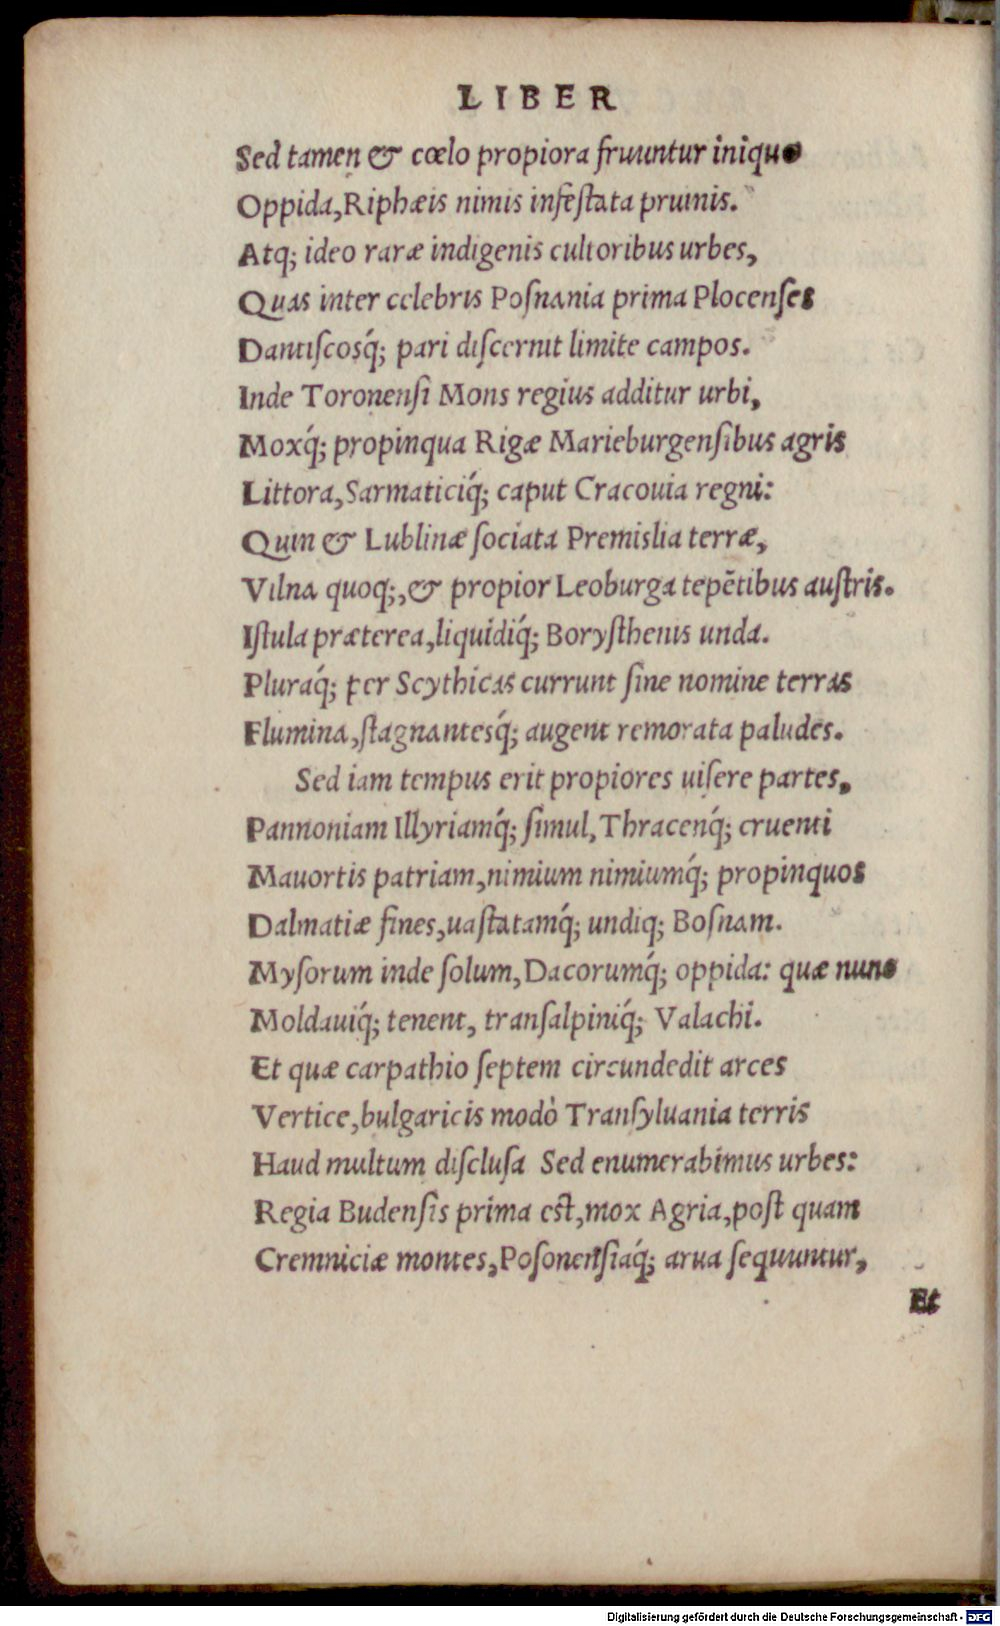 LIBER
Sed tamen & cœlo propiora fruuntur iniquo
Oppida, Riphæis nimis infeſtata pruinis.
Atq; ideo raræ indigenis cultoribus urbes,
Quas inter celebris Poſnania prima Plocenſes
Dantiſcosq́; pari diſcernit limite campos.
Inde Toronenſi Mons regius additur urbi,
Moxq́; propinqua Rigæ Marieburgenſibus agris
Littora, Sarmaticiq́; caput Cracouia regni:
Quin & Lublinæ ſociata Premislia terræ,
Vilna quoq;, & propior Leoburga tepẽtibus auſtris.
Iſtula præterea, liquidiq́; Boryſthenis unda.
Pluraq́; per Scythicas currunt ſine nomine terras
Flumina, ſtagnantesq́; augent remorata paludes.
Sed iam tempus erit propiores uiſere partes,
Pannoniam Illyriamq́; ſimul, Thracenq́; cruenti
Mauortis patriam, nimium nimiumq́; propinquos
Dalmatiæ fines, uaſtatamq́; undiq; Boſnam.
Myſorum inde ſolum, Dacorumq́; oppida: quæ nunc
Moldauiq́; tenent, tranſalpiniq́; Valachi.
Et quæ carpathio ſeptem circundedit arces
Vertice, bulgaricis modò Tranſyluania terris
Haud multum diſcluſa Sed enumerabimus urbes:
Regia Budenſis prima eſt, mox Agria, poſt quam
Cremniciæ montes, Poſonenſiaq́; arua ſequuntur,
Et
Digitalisierung gefördert durch die Deutsche Forschungsgemeinschaft - DFG